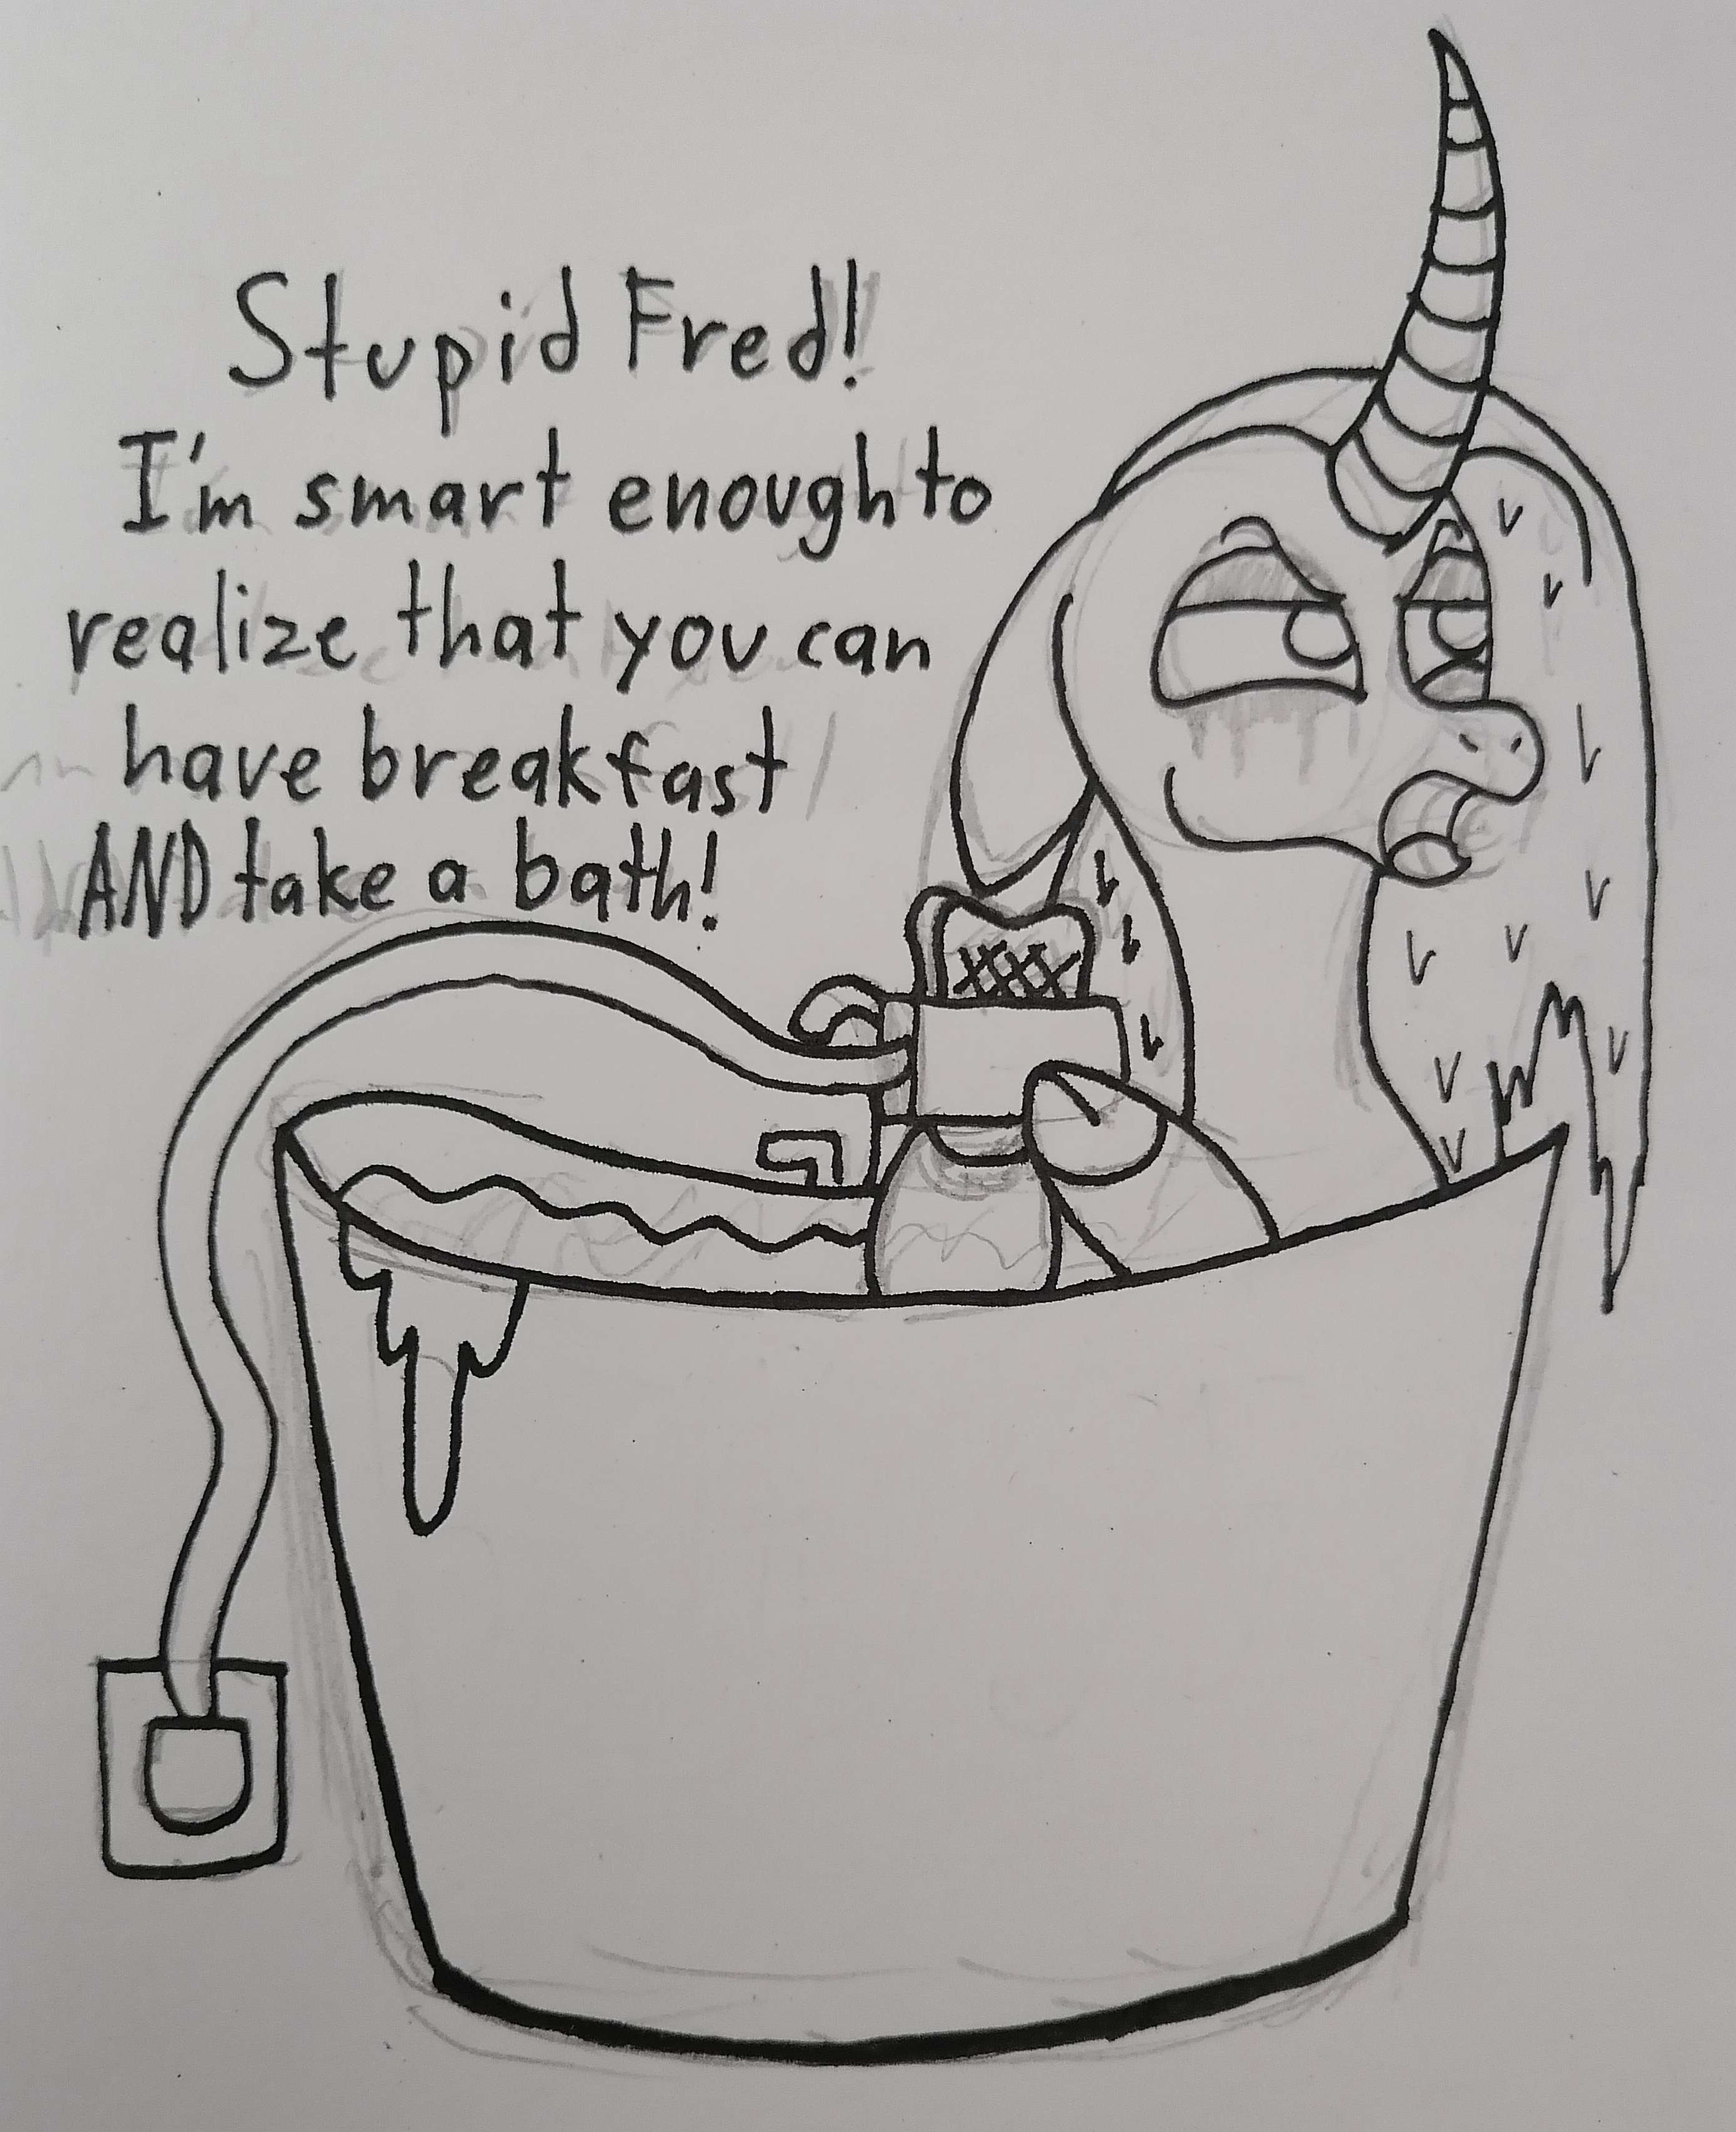 Stupid Fred!
I'm smart enough to
realize that you can
have breakfast
AND take a bath!